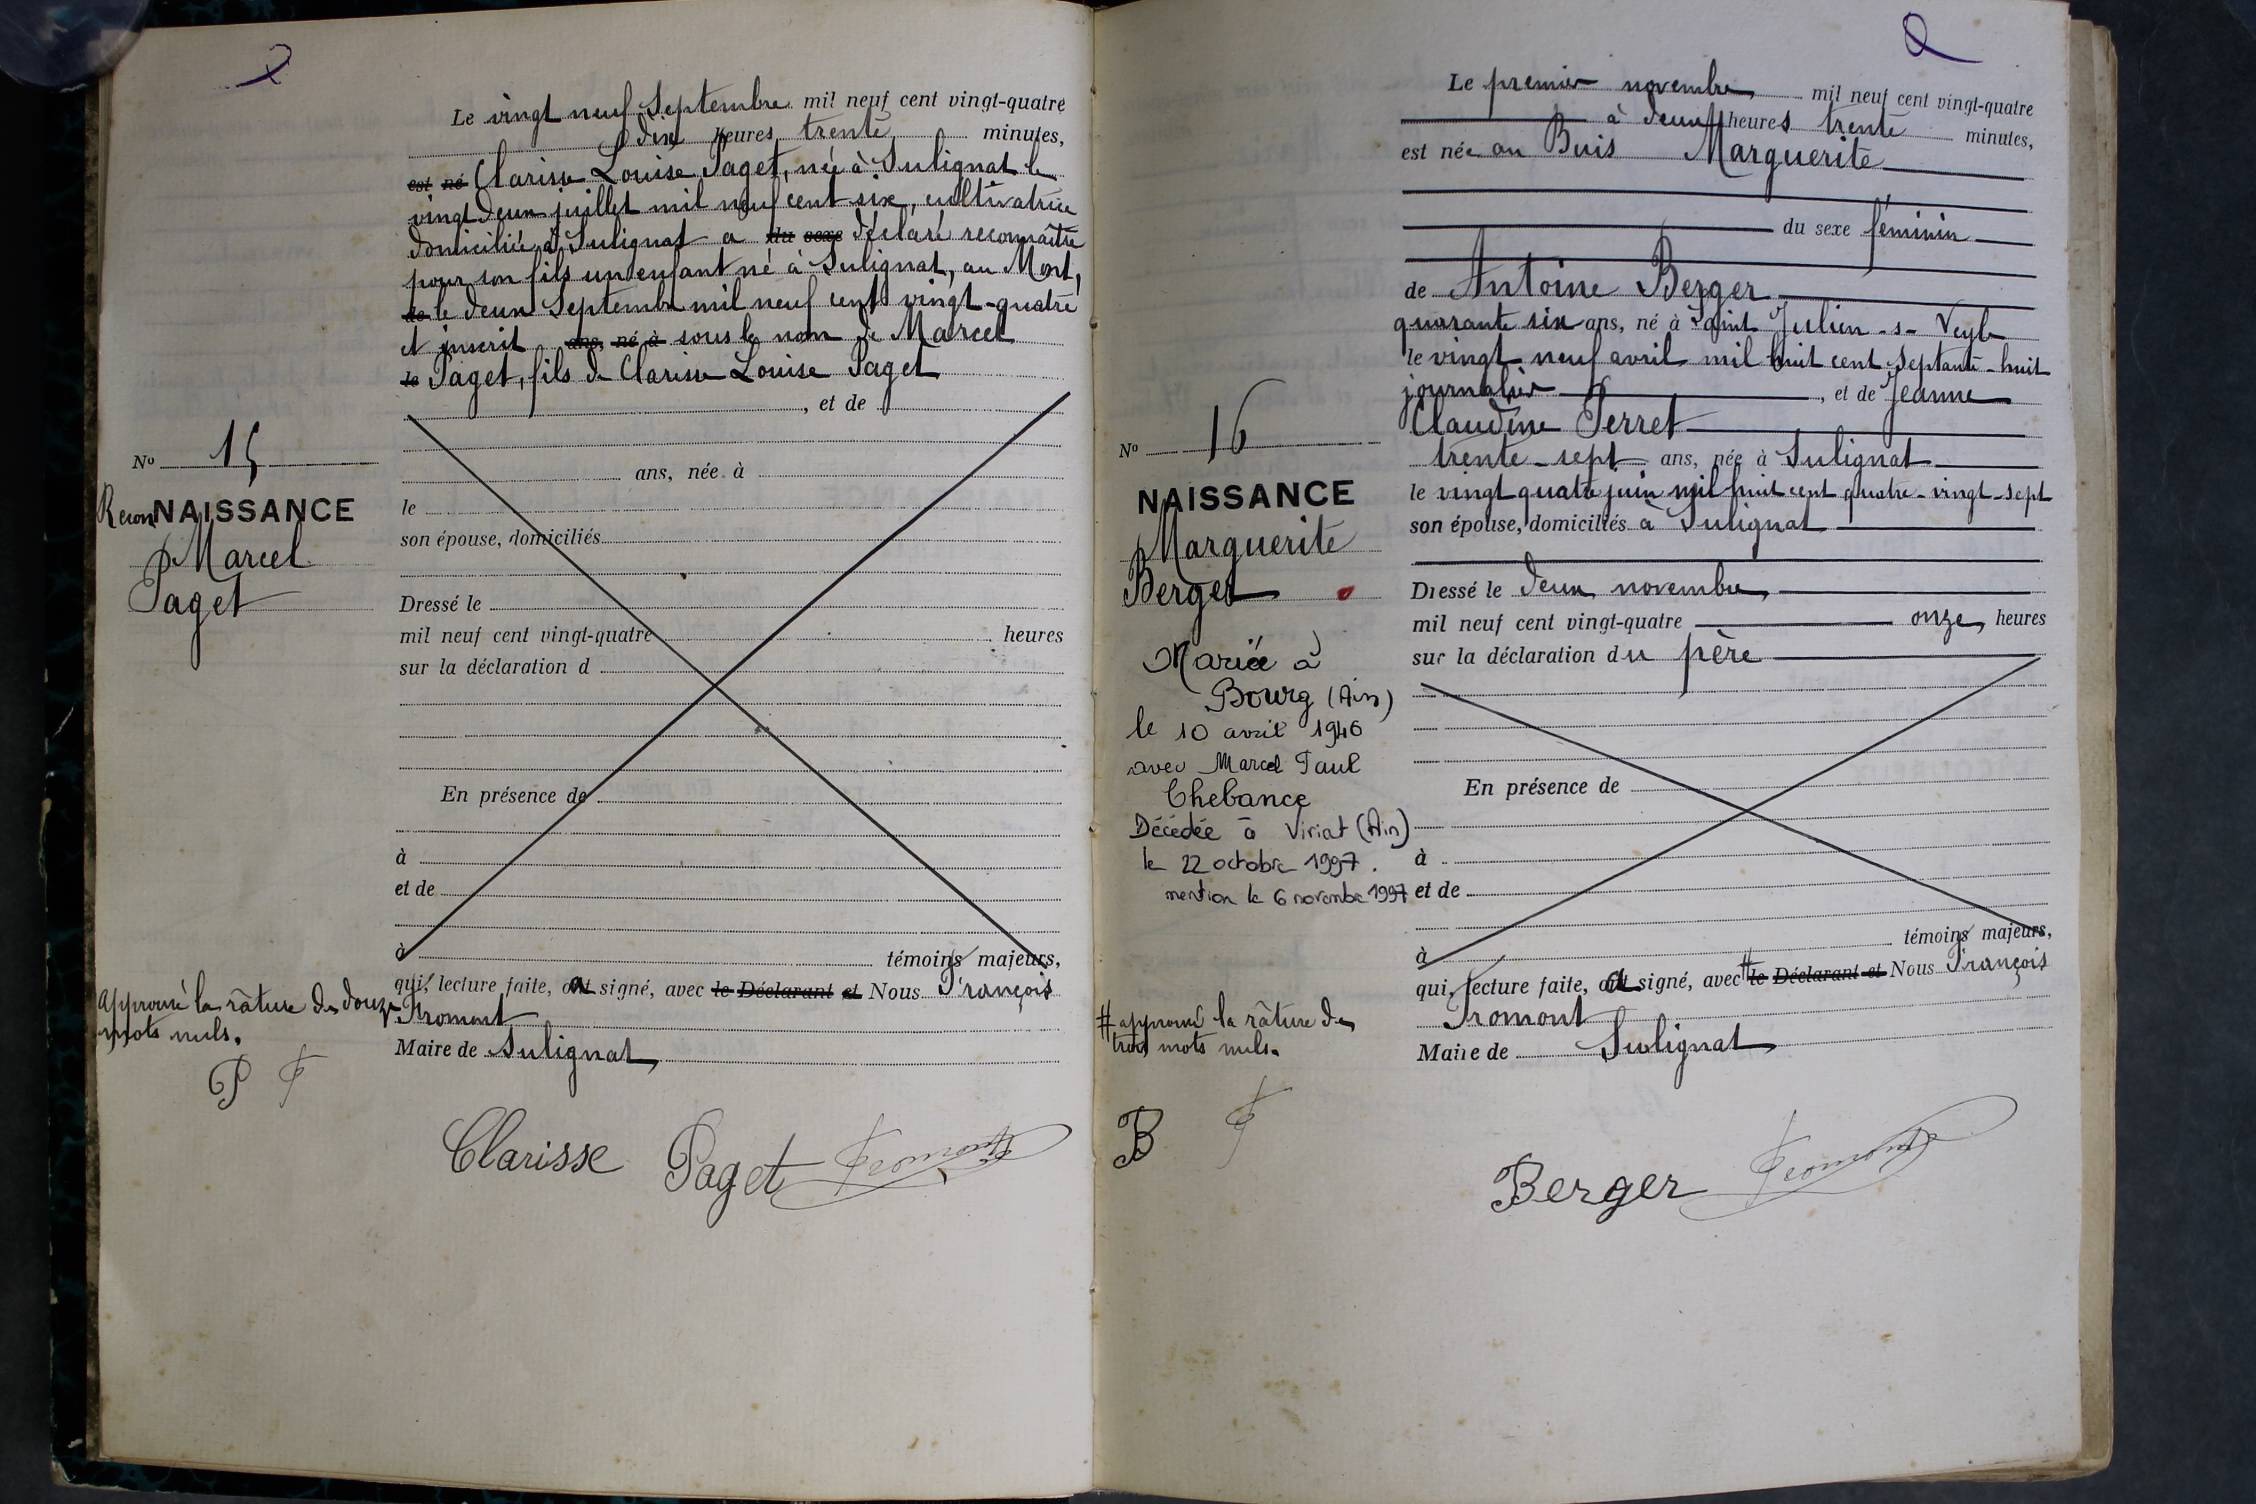 Le vingt neuf Septembre mil neuf cent vingt-quatre
dix heures trente minutes,
est né Clarisse Louise Paget, née à Sulignat le
vingt deux juillet mil neuf cent six, cultivatrice
domiciliée à Sulignat a du sexe déclaré reconnaître
pour son fils un enfant né à Sulignat, au Mont,
de le deux Septembre mil neuf cent vingt-quatre
et inscrit ans, né à sous le nom de Marcel
le Paget, fils de Clarisse Louise Paget
, et de
ans, née à
le
son épouse, domiciliés
Dressé le
mil neuf cent vingt-quatre heures
sur la déclaration d
En présence de
à
et de
à témoins majeurs,
qui, lecture faite, a signé, avec le Déclarant et Nous François
Fromont
Maire de Sulignat
Nº 15
Recon NAISSANCE
Marcel
Paget
approuvé la râture de douze
mots nuls.
P F
Clarisse Paget Fromont
Le premier novembre mil neuf cent vingt-quatre
à deux heures trente minutes,
est née au Buis Marguerite
du sexe féminin
de Antoine Berger
quarante six ans, né à Saint Julien-s-Veyle
le vingt neuf avril mil huit cent septante-huit
journalier, et de Jeanne
Claudine Perret
trente-sept ans, née à Sulignat
le vingt quatre juin mil huit cent quatre-vingt-sept
son épouse, domiciliés à Sulignat
Dressé le deux novembre
mil neuf cent vingt-quatre onze heures
sur la déclaration du père
En présence de
à
et de
à témoins majeurs,
qui, lecture faite, a signé, avec # le Déclarant et Nous François
Fromont
Maire de Sulignat
Nº 16
NAISSANCE
Marguerite
Berger
Mariée à
Bourg (Ain)
le 10 avril 1946
avec Marcel Paul
Chebance
Décédée à Viriat (Ain)
le 22 octobre 1997.
mention le 6 novembre 1997
# approuvé la râture de
trois mots nuls.
B F
Berger Fromont